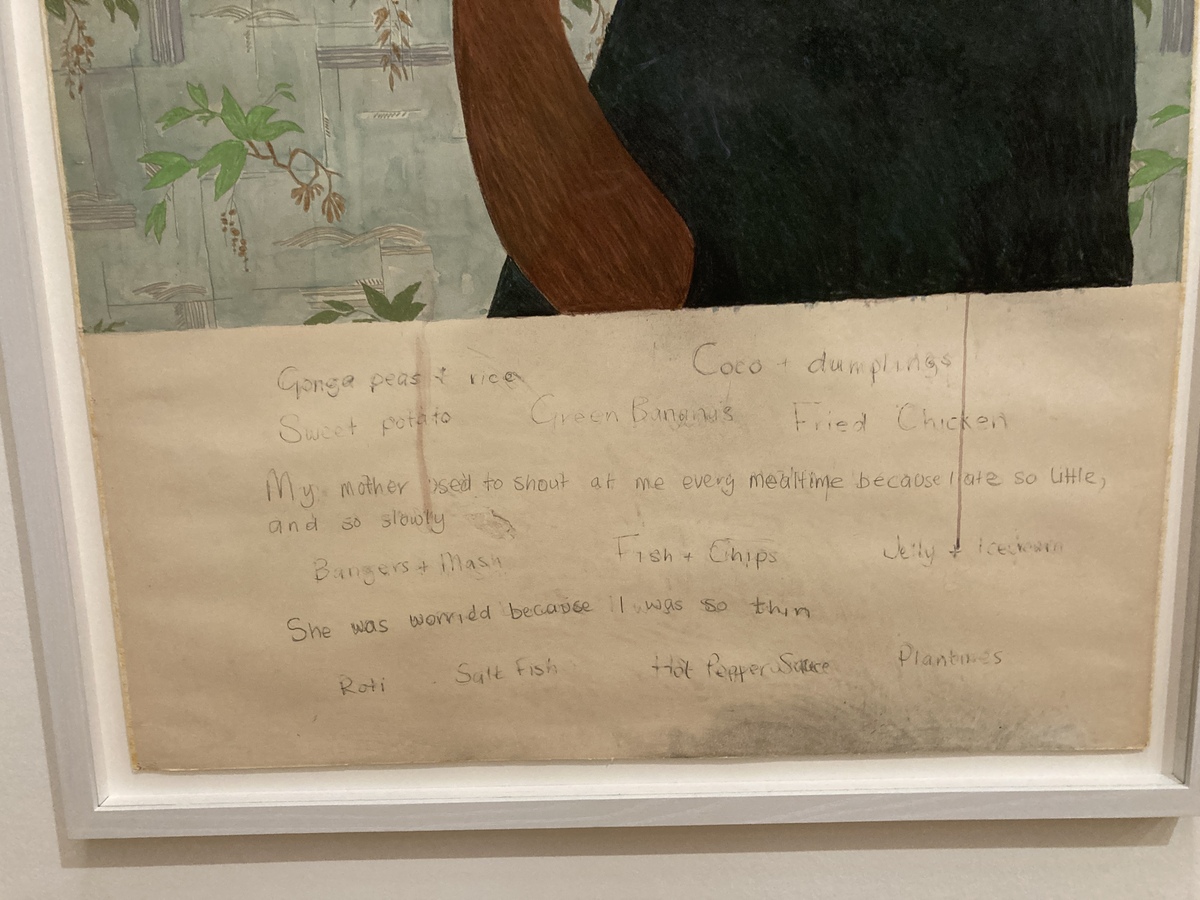 Gonga peas + rice
Coco + dumplings
Sweet potato
Green Bananas
Fried Chicken
My mother used to shout at me every mealtime because I ate so little,
and so slowly
Bangers + Mash
Fish + Chips
Jelly + Icecream
She was worried because I was so thin
Roti
Salt Fish
Hot Pepper Sauce
Plantines